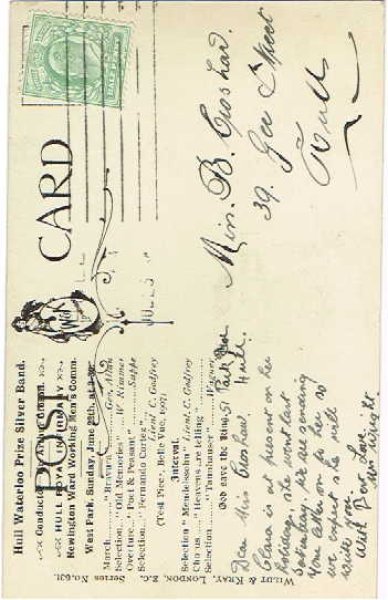 Hull Waterloo Prize Silver Band.
HULL ROYAL INFIRMARY
Newington Ward Working Men's Comm.
West Park, Sunday, June
March
Selection "Old Memories" W. Rimmer
Overture "Poet & Peasant" Suppe
Selection "Fernando Cortez"
Lieut. C. Godfrey
(Test Piece, Belle Vue, 1907)
Interval.
Selection "Mendelssohn" Lieut. C. Godfrey
Chorus "Heavens are telling"
Selection "Tannhauser" Wagner
God save the King.
POST CARD
WILDT & KRAY, LONDON, E.C. Series No.
Miss. B. Croshaw.
39. Gee Street
Hull
5 Park
Hull.
Dear Miss Croshaw
Clara is at present on her
holidays she went last
Saturday. We are sending
your letter on to her so
we expect she will
write you.
With Best Love
Wright